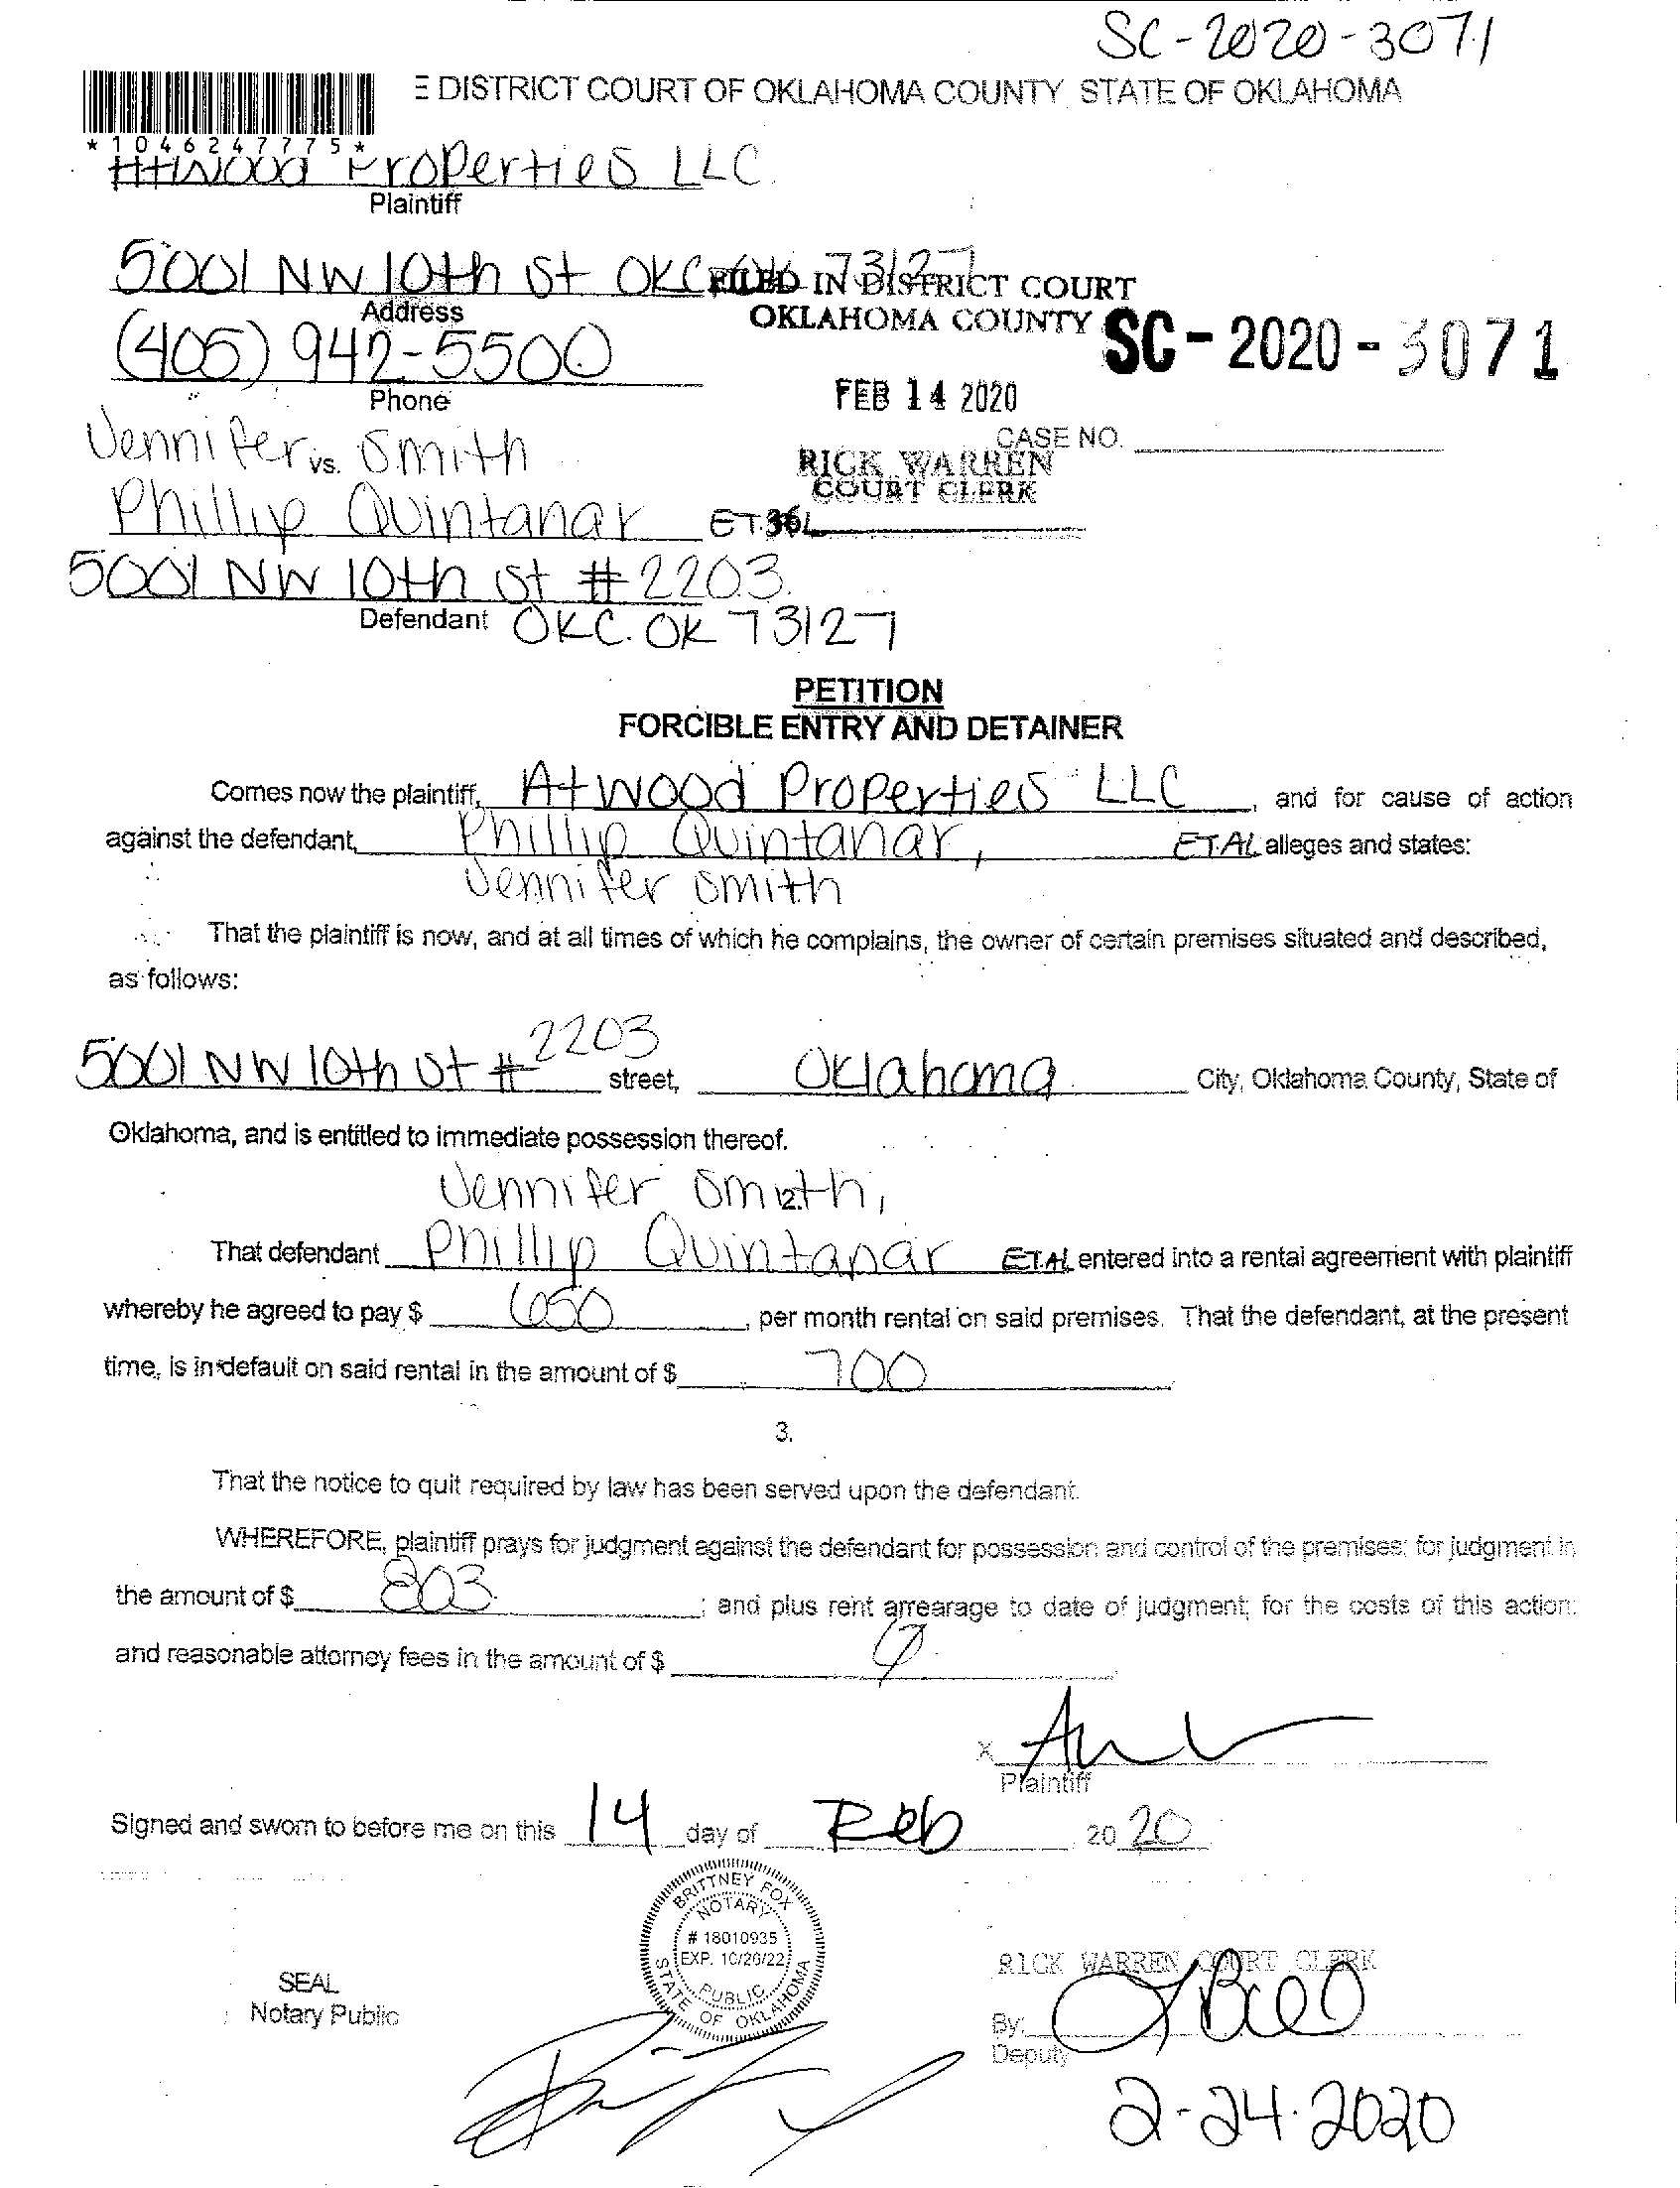 SC-2020-3071
E DISTRICT COURT OF OKLAHOMA COUNTY STATE OF OKLAHOMA
*1046247775*
Atwood Properties LLC
Plaintiff
5001 NW 10th St OKC OK 73127
FILED IN DISTRICT COURT
Address
OKLAHOMA COUNTY
SC-2020-3071
(405) 942-5500
Phone
FEB 14 2020
CASE NO.
Jennifer Smith
vs.
RICK WARREN
COURT CLERK
Phillip Quintanar ET.AL
36
5001 NW 10th St #2203
Defendant
OKC. OK 73127
PETITION
FORCIBLE ENTRY AND DETAINER
Comes now the plaintiff, Atwood Properties LLC, and for cause of action
against the defendant, Phillip Quintanar, ET.AL alleges and states:
Jennifer Smith
That the plaintiff is now, and at all times of which he complains, the owner of certain premises situated and described,
as follows:
5001 NW 10th St #2203 street, Oklahoma City, Oklahoma County, State of
Oklahoma, and is entitled to immediate possession thereof.
Jennifer Smith,
2.
That defendant Phillip Quintanar ET.AL entered into a rental agreement with plaintiff
whereby he agreed to pay $ 650, per month rental on said premises. That the defendant, at the present
time, is in default on said rental in the amount of $ 700
3.
That the notice to quit required by law has been served upon the defendant.
WHEREFORE, plaintiff prays for judgment against the defendant for possession and control of the premises; for judgment in
the amount of $ 803; and plus rent arrearage to date of judgment; for the costs of this action;
and reasonable attorney fees in the amount of $
X
Plaintiff
Signed and sworn to before me on this 14 day of Feb 20 20
BRITTNEY FOX
NOTARY
# 18010935
EXP. 10/26/22
PUBLIC
STATE OF OKLAHOMA
SEAL
Notary Public
RICK WARREN COURT CLERK
By:
Deputy
2-24-2020